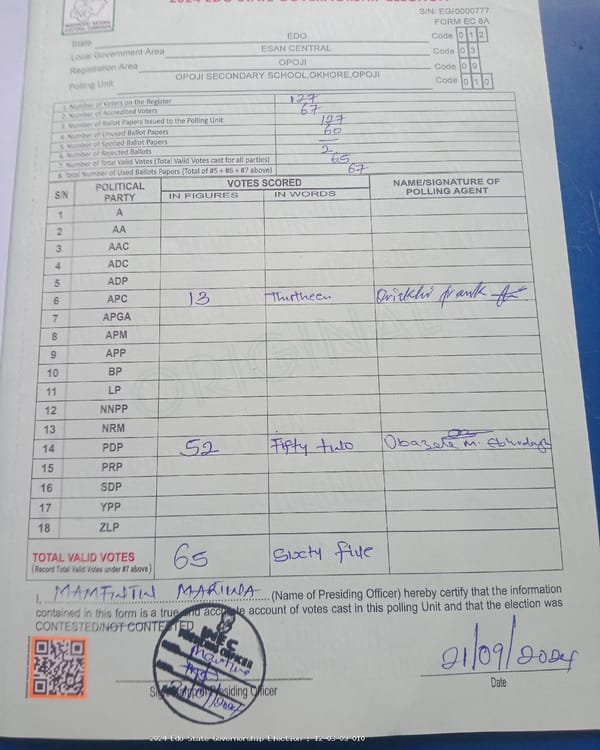 2024 EDO STATE GOVERNORSHIP ELECTION
S/N: EG/0000777
FORM EC 8A
State EDO Code 0 1 2
Local Government Area ESAN CENTRAL Code 0 3
Registration Area OPOJI Code 0 9
Polling Unit OPOJI SECONDARY SCHOOL,OKHORE,OPOJI Code 0 1 0
1. Number of Voters on the Register 127
2. Number of Accredited Voters 67
3. Number of Ballot Papers Issued to the Polling Unit 127
4. Number of Unused Ballot Papers 60
5. Number of Spoiled Ballot Papers —
6. Number of Rejected Ballots 2
7. Number of Total Valid Votes (Total Valid Votes cast for all parties) 65
8. Total Number of Used Ballots Papers (Total of #5 + #6 + #7 above) 67
S/N POLITICAL PARTY VOTES SCORED NAME/SIGNATURE OF POLLING AGENT
IN FIGURES IN WORDS
1 A
2 AA
3 AAC
4 ADC
5 ADP
6 APC 13 Thirtheen frank
7 APGA
8 APM
9 APP
10 BP
11 LP
12 NNPP
13 NRM
14 PDP 52 Fifty two Obazele M.
15 PRP
16 SDP
17 YPP
18 ZLP
TOTAL VALID VOTES 65 Sixty five
(Record Total Valid Votes under #7 above)
I, (Name of Presiding Officer) hereby certify that the information
contained in this form is a true and accurate account of votes cast in this polling Unit and that the election was
CONTESTED/NOT CONTESTED
INEC
PRESIDING OFFICER
21/09/2024
Signature of Presiding Officer
Date
2024 Edo State Governorship Election : 12-03-09-010
ORIGINAL